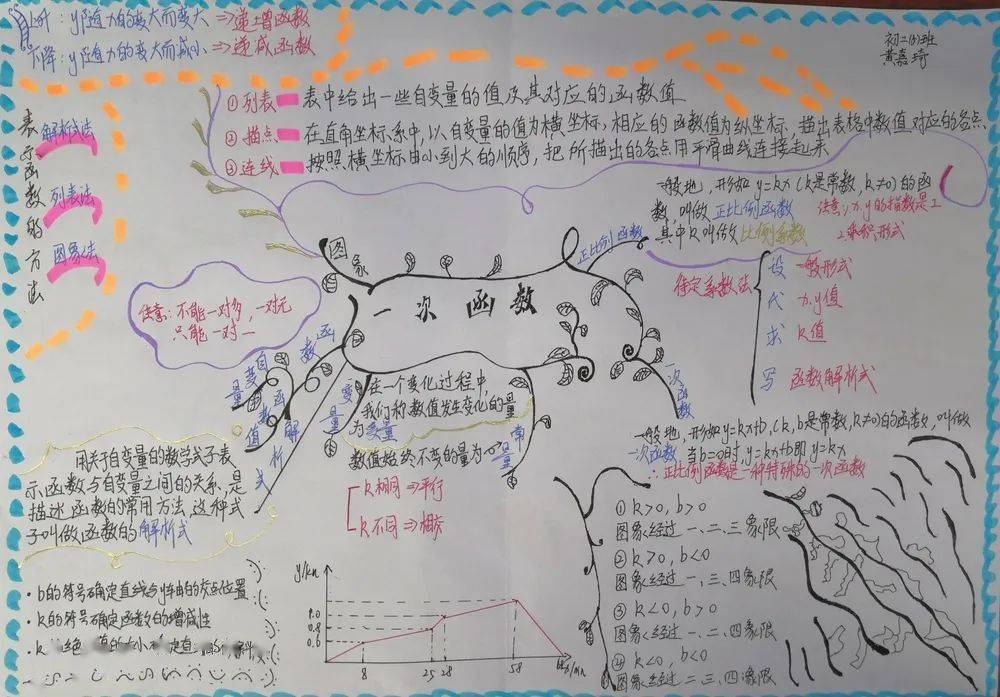 上升：y随x的变大而变大⇒递增函数
下降：y随x的变大而减小⇒递减函数
初二(6)班
黄嘉琦
表示函数的方法
解析式法
列表法
图象法
①列表 表中给出一些自变量的值及其对应的函数值
②描点 在直角坐标系中，以自变量的值为横坐标，相应的函数值为纵坐标，描出表格中数值对应的各点
③连线 按照横坐标由小到大的顺序，把所描出的各点用平滑曲线连接起来
一般地，形如y=kx（k是常数，k≠0）的函
数，叫做正比例函数 注意：x.y的指数是1
其中k叫做比例系数 2乘积形式
图象
正比例函数
一次函数
待定系数法
设 一般形式
代 x.y值
求 k值
写 函数解析式
注意：不能一对多，一对无
只能一对一
函数
自变量
函数值
解析式
变量
常量
一次函数
在一个变化过程中，
我们称数值发生变化的量
为变量
数值始终不变的量为
常量
k相同⇒平行
k不同⇒相交
用关于自变量的数学式子表
示函数与自变量之间的关系，是
描述函数的常用方法，这种式
子叫做函数的解析式
一般地，形如y=kx+b，(k，b是常数，k≠0)的函数，叫做
一次函数 当b=0时，y=kx+b即y=kx
∴正比例函数是一种特殊的一次函数
①k>0，b>0
图象经过一、二、三象限
②k>0，b<0
图象经过一、三、四象限
③k<0，b>0
图象经过一、二、四象限
④k<0，b<0
图象经过二、三、四象限
·b的符号确定直线与y轴的交点位置
·k的符号确定函数的增减性
·k 绝 的大小
y/km
0.8
0.6
8
25
28
58